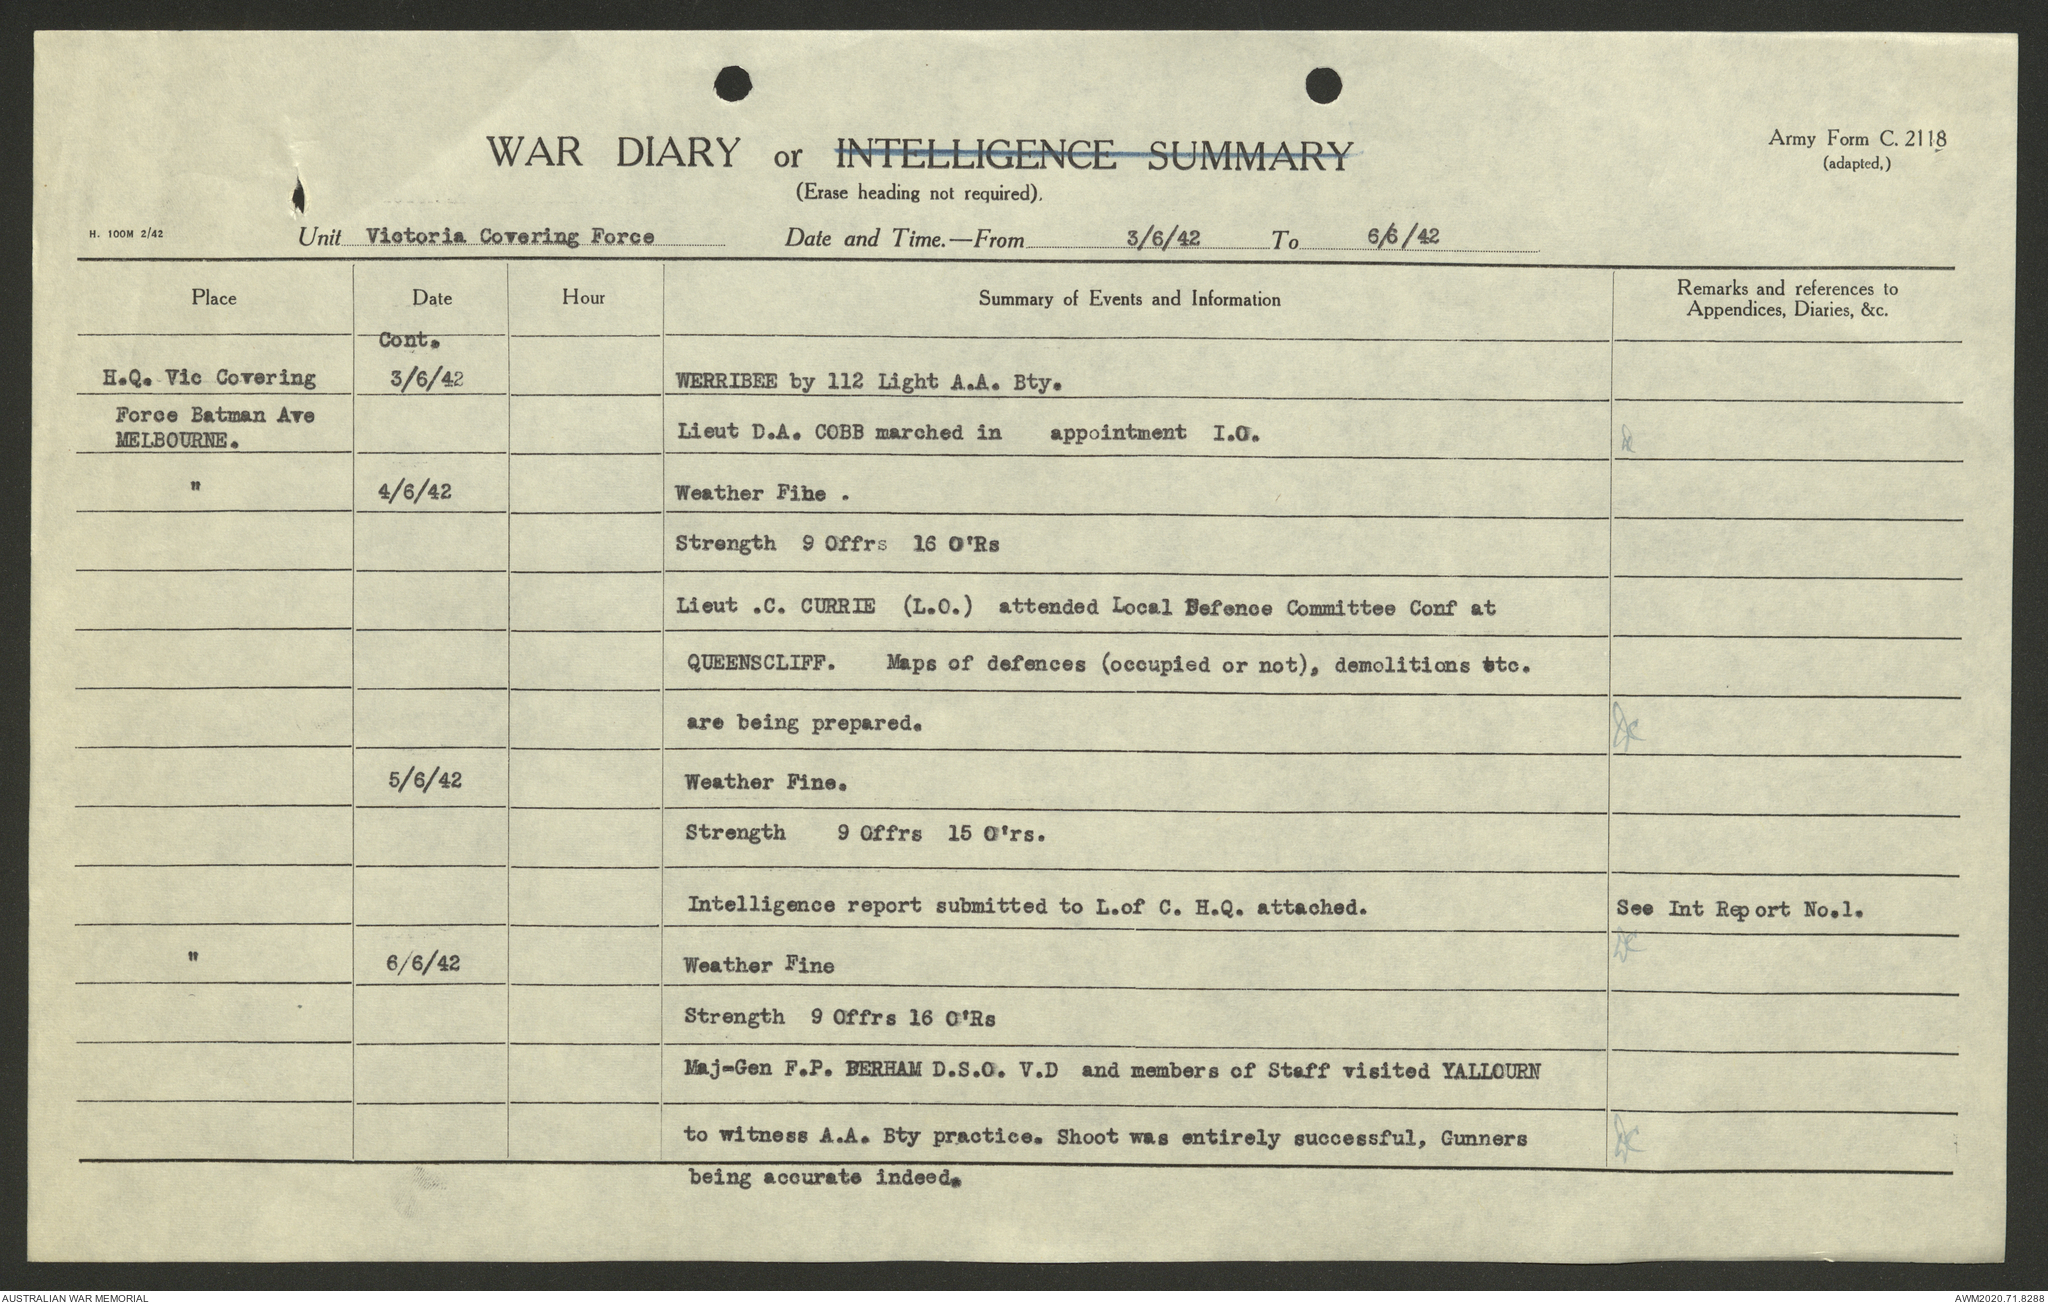 WAR DIARY or INTELLIGENCE SUMMARY
(Erase heading not required).
Army Form C. 2118
(adapted,)
H. 100M 2/42
Unit Victoria Covering Force Date and Time.—From 3/6/42 To 6/6/42
Place Date Hour Summary of Events and Information Remarks and references to
Appendices, Diaries, &c.
Cont.
H.Q. Vic Covering 3/6/42 WERRIBEE by 112 Light A.A. Bty.
Force Batman Ave
MELBOURNE. Lieut D.A. COBB marched in appointment I.O.
" 4/6/42 Weather Fine .
Strength 9 Offrs 16 O'Rs
Lieut .C. CURRIE (L.O.) attended Local Defence Committee Conf at
QUEENSCLIFF. Maps of defences (occupied or not), demolitions etc.
are being prepared. DC
5/6/42 Weather Fine.
Strength 9 Offrs 15 O'rs.
Intelligence report submitted to L.of C. H.Q. attached. See Int Report No.1.
DC
" 6/6/42 Weather Fine
Strength 9 Offrs 16 O'Rs
Maj-Gen F.P. DERHAM D.S.O. V.D and members of Staff visited YALLOURN
to witness A.A. Bty practice. Shoot was entirely successful, Gunners DC
being accurate indeed.
AUSTRALIAN WAR MEMORIAL
AWM2020.71.8288